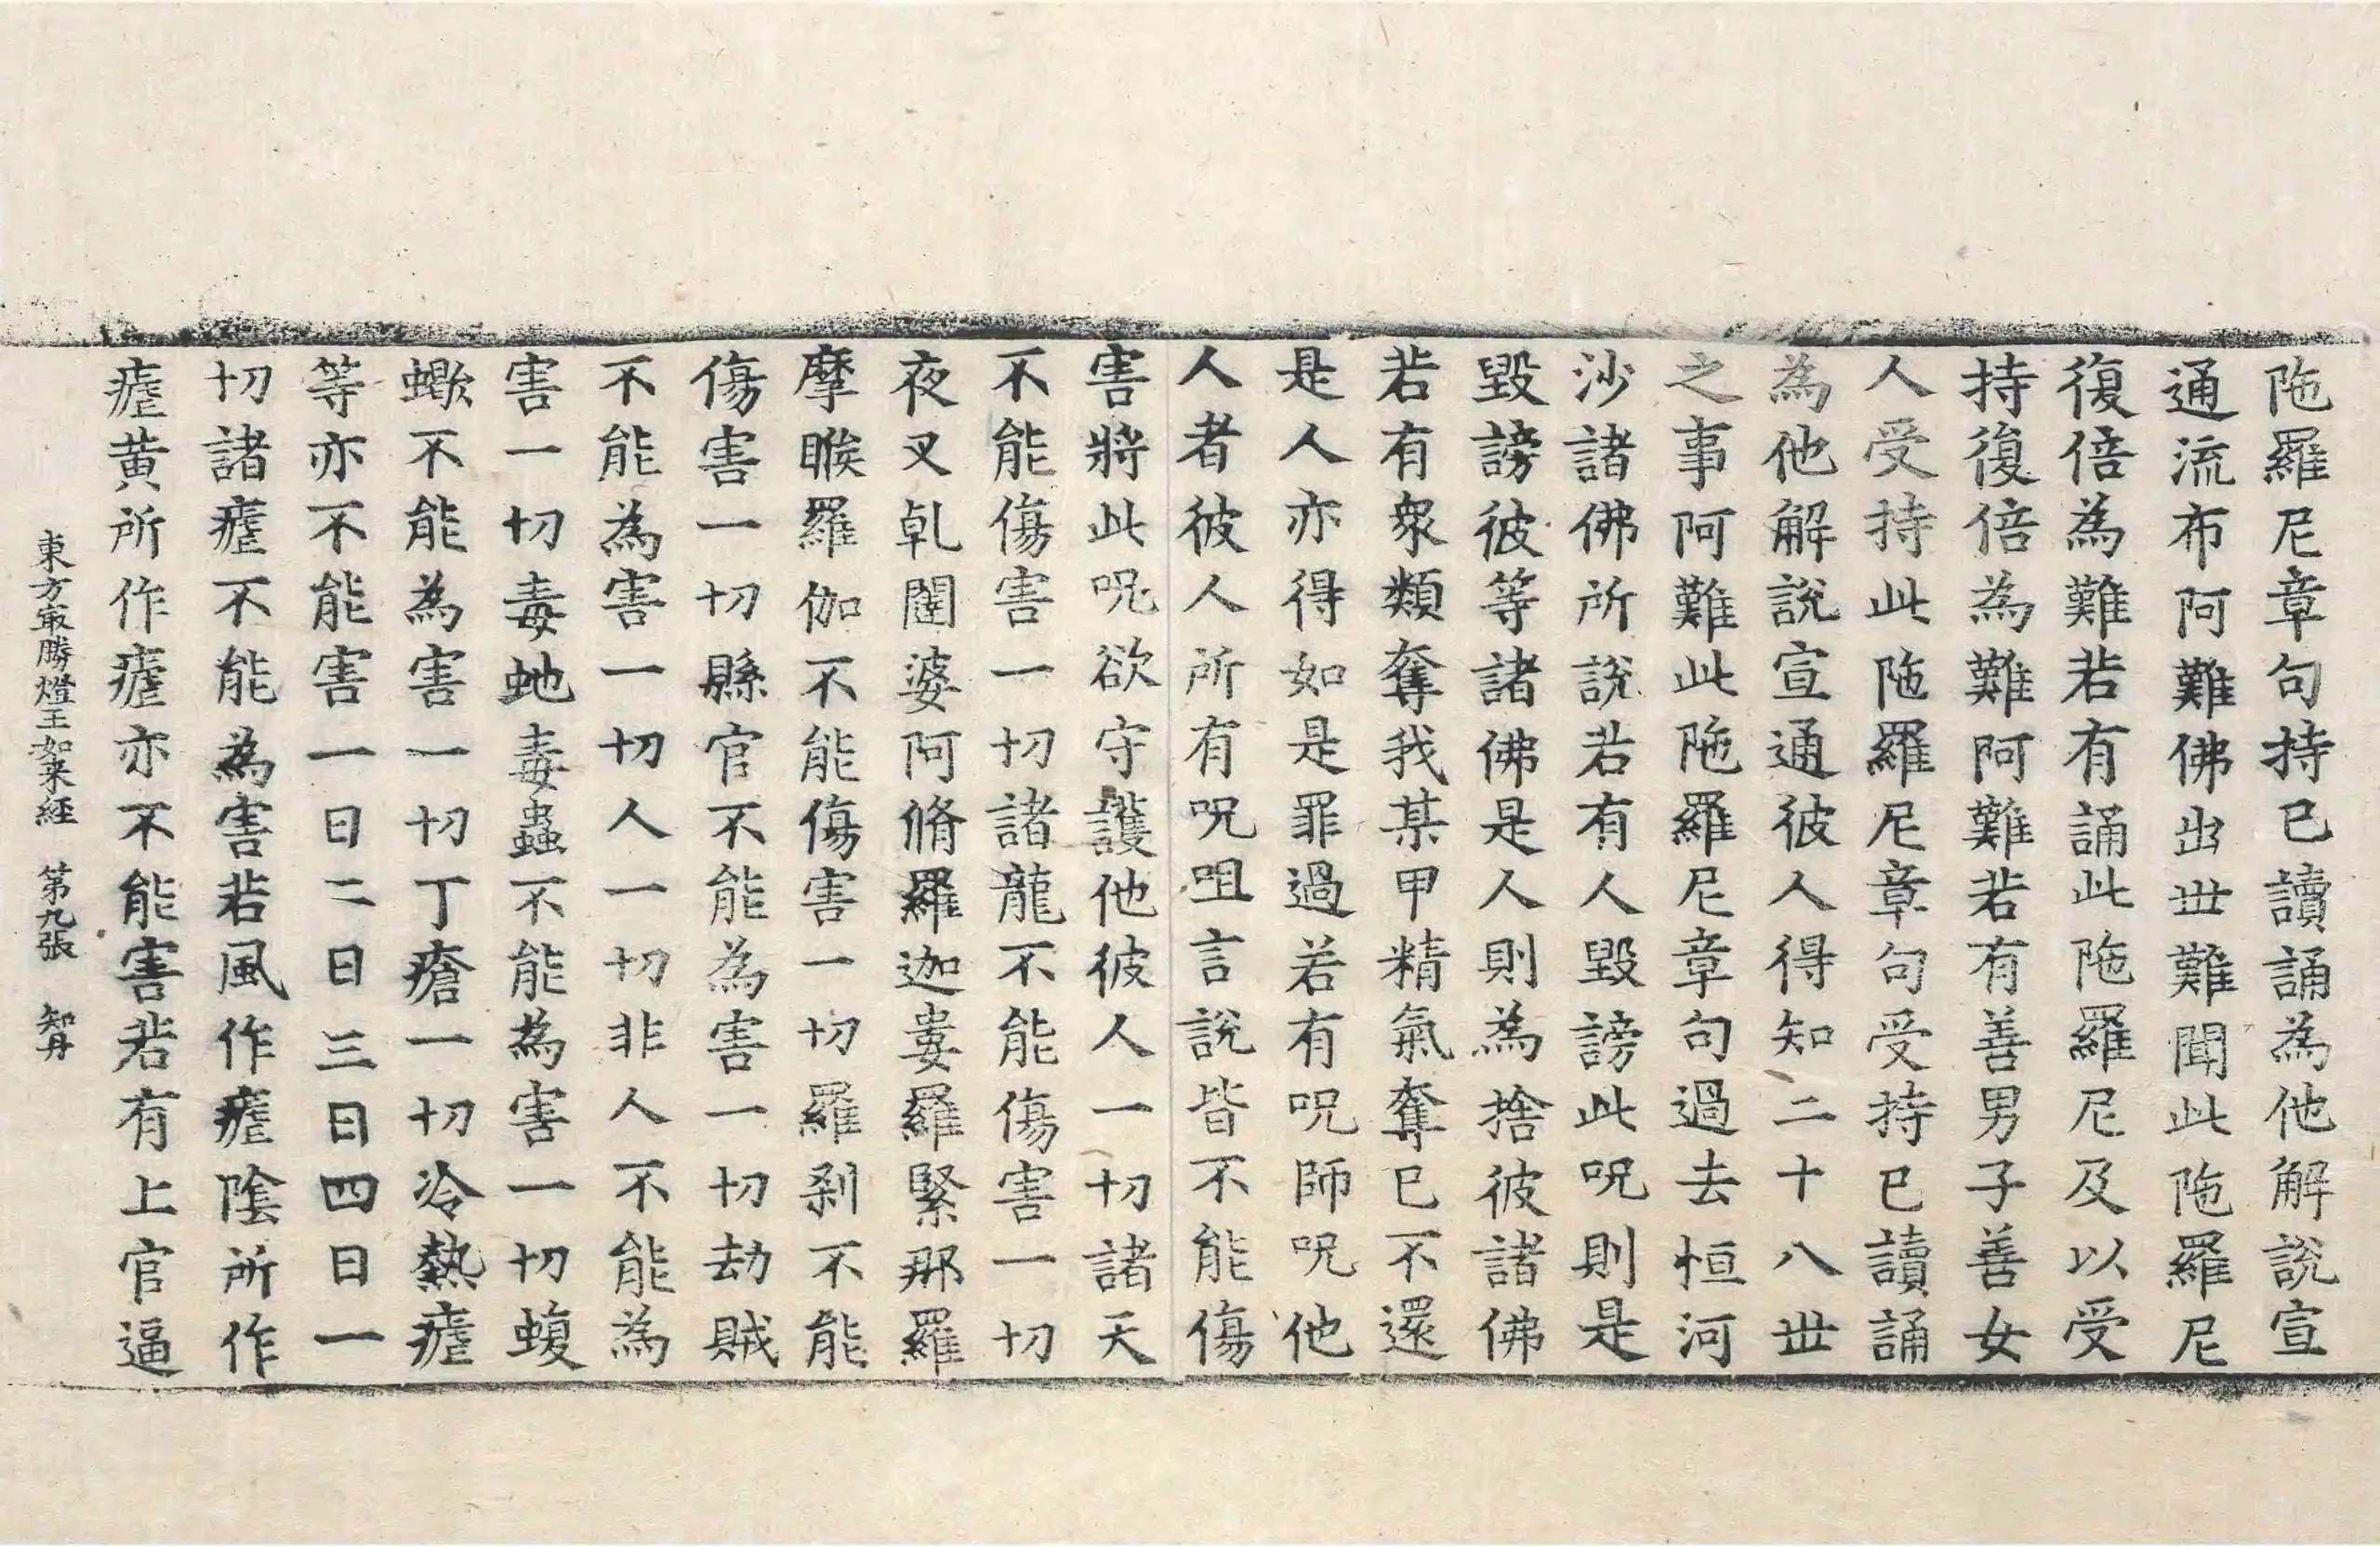 陁羅尼章句持已讀誦為他解說宣
通流布阿難佛出世難聞此陁羅尼
復倍為難若有誦此陁羅尼及以受
持復倍為難阿難若有善男子善女
人受持此陁羅尼章句受持已讀誦
為他解說宣通彼人得知二十八世
之事阿難此陁羅尼章句過去恒河
沙諸佛所說若有人毀謗此呪則是
毀謗彼等諸佛是人則為捨彼諸佛
若有衆類奪我某甲精氣奪已不還
是人亦得如是罪過若有呪師呪他
人者彼人所有呪咀言說皆不能傷
害將此呪欲守護他彼人一切諸天
不能傷害一切諸龍不能傷害一切
夜叉乹闥婆阿脩羅迦婁羅緊那羅
摩睺羅伽不能傷害一切羅剎不能
傷害一切縣官不能為害一切劫賊
不能為害一切人一切非人不能為
害一切毒虵毒蟲不能為害一切蝮
蠍不能為害一切丁瘡一切冷熱瘧
等亦不能害一日二日三日四日一
切諸瘧不能為害若風作瘧陰所作
瘧黃所作瘧亦不能害若有上官逼
東方㝡勝燈王如来経　第九張